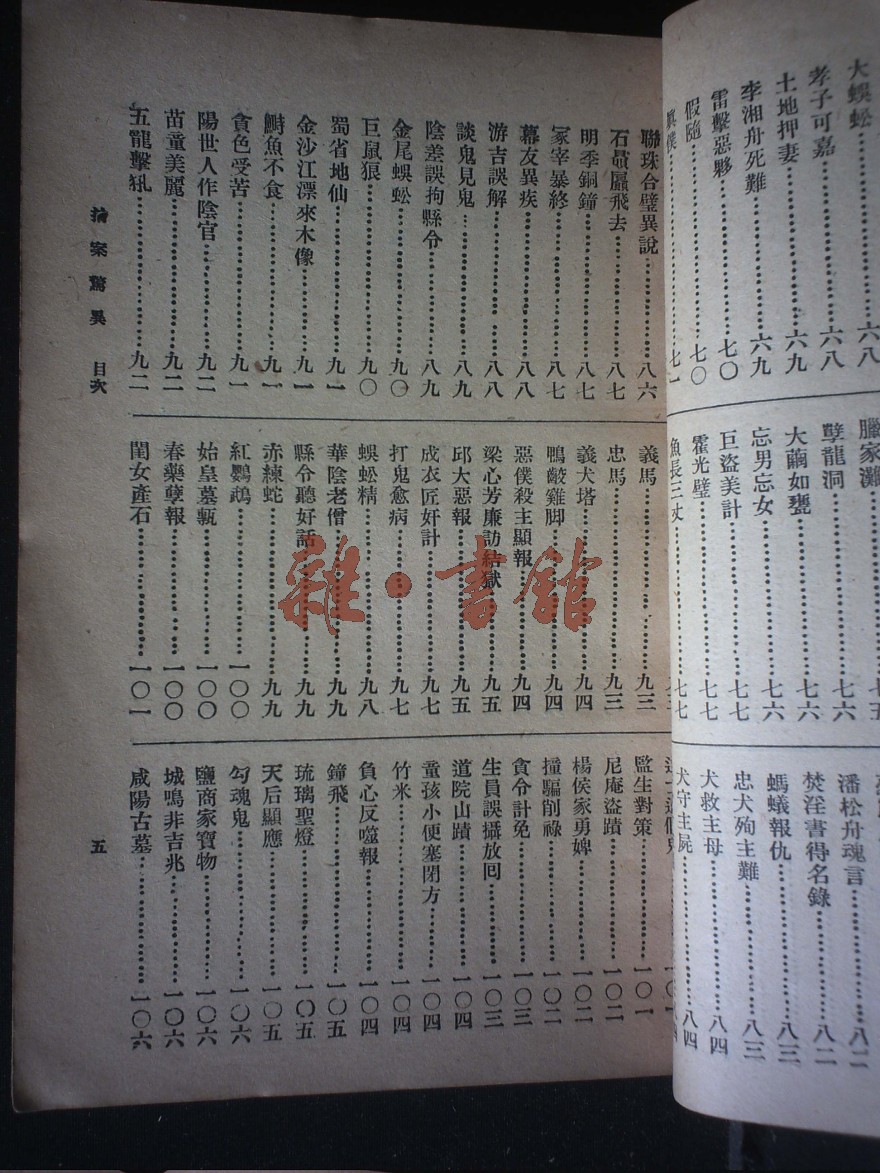 大蜈蚣……六八
孝子可嘉……六八
土地押妻……六九
李湘舟死難……六九
雷擊惡夥……七〇
假隨……七〇
僕……七一
臘家灘
孽龍洞……七六
大繭如甕……七六
忘男忘女……七六
巨盜美計……七七
霍光璧……七七
魚長三丈……七七
潘松舟魂言……八二
焚淫書得名錄……八二
螞蟻報仇……八三
忠犬殉主難……八三
犬救主母……八四
犬守主屍……八四
聯珠合璧異說……八六
石贔屭飛去……八七
明季銅鐘……八七
冢宰暴終……八七
幕友異疾……八八
游吉誤解……八八
談鬼見鬼……八九
陰差誤拘縣令……八九
金尾蜈蚣……九〇
巨鼠狼……九〇
蜀省地仙……九一
金沙江漂來木像……九一
鰣魚不食……九一
貪色受苦……九一
陽世人作陰官……九二
苗童美麗……九二
五龍擊犼……九二
義馬……九三
忠馬……九三
義犬塔……九四
鴨齩雞脚……九四
惡僕殺主顯報……九四
梁心芳廉訪結獄……九五
邱大惡報……九五
成衣匠奸計……九七
打鬼愈病……九七
蜈蚣精……九八
華陰老僧……九九
縣令聽好話……九九
赤練蛇……九九
紅鸚鵡……一〇〇
始皇墓甎……一〇〇
春藥孽報……一〇〇
閨女產石……一〇一
監生對策……一〇一
尼庵盜蹟……一〇二
楊侯家勇婢……一〇二
撞騙削祿……一〇二
貪令計免……一〇三
生員誤攝放回……一〇三
道院山蹟……一〇四
童孩小便塞閉方……一〇四
竹米……一〇四
負心反噬報……一〇四
鐘飛……一〇五
琉璃聖燈……一〇五
天后顯應……一〇五
勾魂鬼……一〇六
鹽商家寶物……一〇六
城鳴非吉兆……一〇六
咸陽古墓……一〇六
案驚異 目次
五
雜·書館